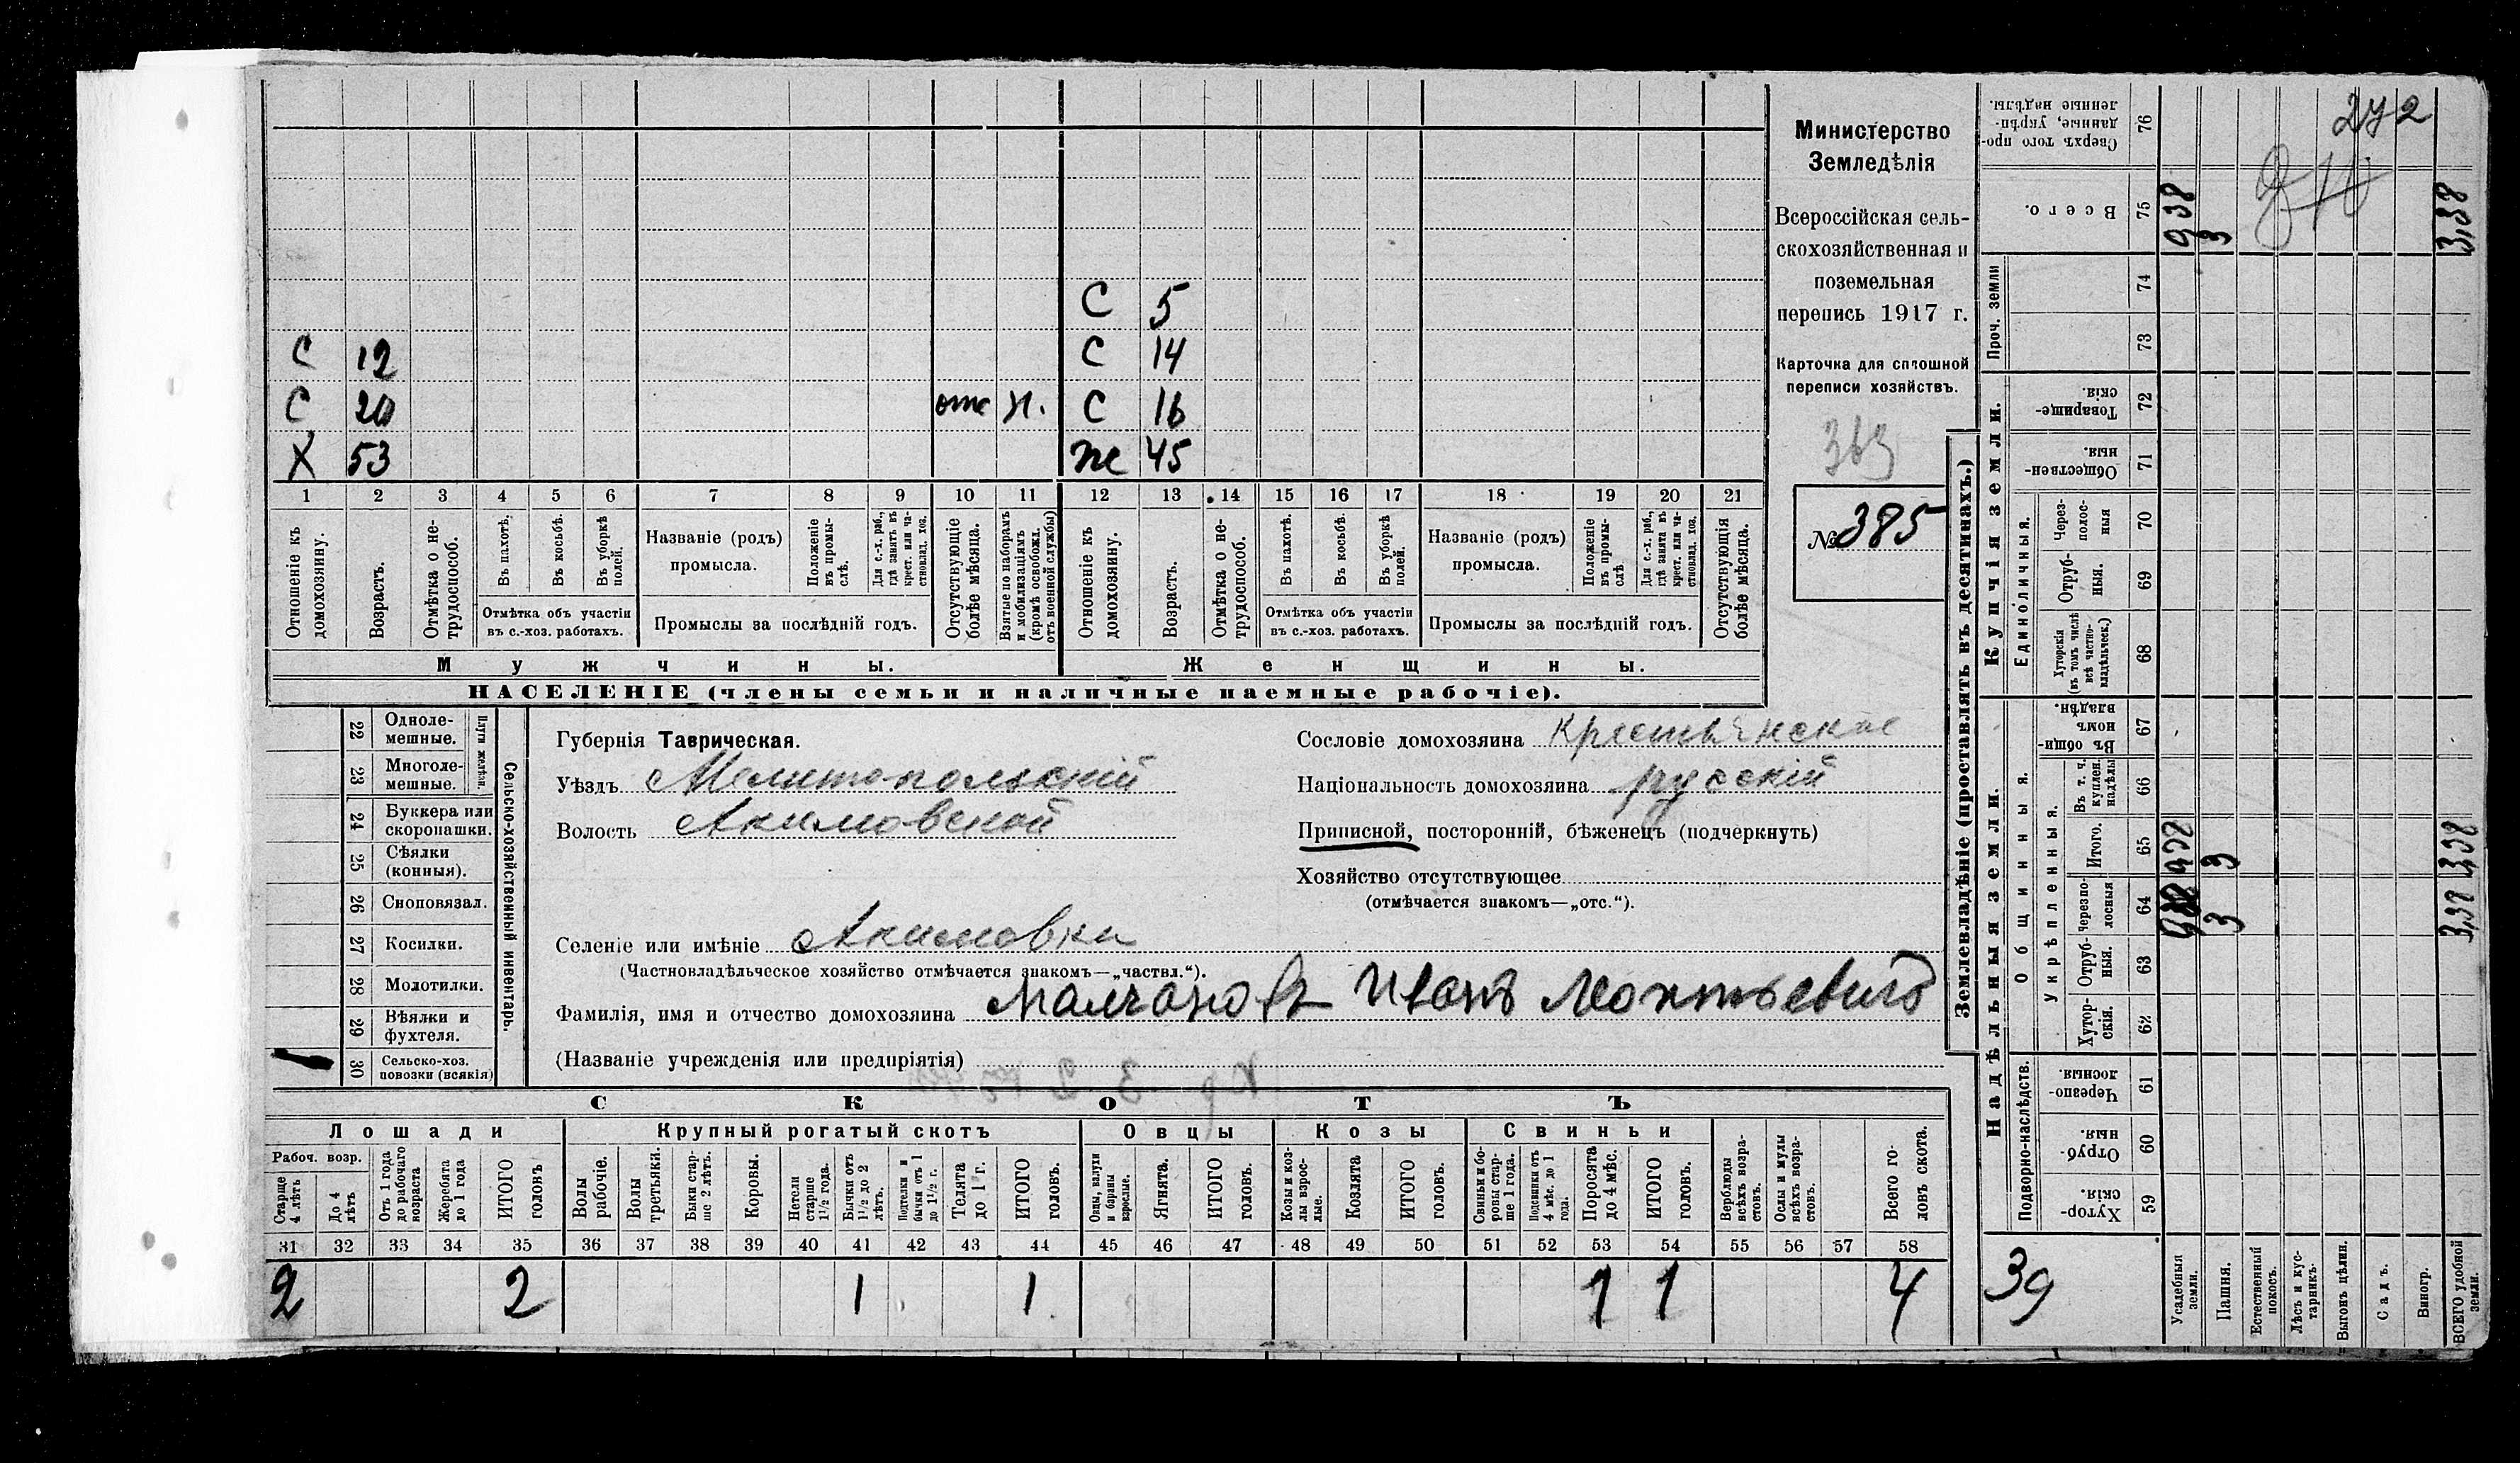 С 5
С 12 С 14
С 20 отс н. С 16
Х 53 Ж 45
1 2 3 4 5 6 7 8 9 10 11 12 13 14 15 16 17 18 19 20 21
Отношеніе къ домохозяину.
Возрастъ.
Отмѣтка о не-
трудоспособ.
Въ пахотѣ.
Въ косьбѣ.
Въ уборкѣ
полей.
Отмѣтка объ участіи
въ с.-хоз. работахъ.
Названіе (родъ)
промысла.
Положеніе
въ промы-
слѣ.
Для с.-х. раб.,
гдѣ занятъ въ
крест. или ча-
стновлад. хоз.
Промыслы за послѣдній годъ.
Отсутствующіе
болѣе мѣсяца.
Взятые по наборамъ
и мобилизаціямъ
(кромѣ освобожд.
отъ военной службы)
Отношеніе къ
домохозяину.
Возрастъ.
Отмѣтка о не-
трудоспособ.
Въ пахотѣ.
Въ косьбѣ.
Въ уборкѣ
полей.
Отмѣтка объ участіи
въ с.-хоз. работахъ.
Названіе (родъ)
промысла.
Положеніе
въ промы-
слѣ
Для с.-х. раб.,
гдѣ занята въ
крест. или ча-
стновлад. хоз.
Промыслы за послѣдній годъ.
Отсутствующія
болѣе мѣсяца.
Мужчины. Женщины.
НАСЕЛЕНІЕ (члены семьи и наличные наемные рабочіе).
Министерство
Земледѣлія
Всероссійская сель-
скохозяйственная и
поземельная
перепись 1917 г.
Карточка для сплошной
переписи хозяйствъ.
363
№ 385
22 Одноле-
мешные.
23 Многоле-
мешные.
Плуги желѣзн.
24 Буккера или
скоропашки.
25 Сѣялки
(конныя).
26 Сноповязал.
27 Косилки.
28 Молотилки.
29 Вѣялки и
фухтеля.
30 Сельско-хоз.
повозки (всякія)
Сельско-хозяйственный инвентарь.
Губернія Таврическая.
Уѣздъ Мелитопольскій
Волость Акимовской
Селеніе или имѣніе Акимовка
(Частновладѣльческое хозяйство отмѣчается знакомъ—„частвл.“).
Сословіе домохозяина крестьянское
Національность домохозяина русскій
Приписной, посторонній, бѣженецъ (подчеркнуть)
Хозяйство отсутствующее
(отмѣчается знакомъ—„отс.“).
Фамилія, имя и отчество домохозяина Малчановъ Иванъ Леонтьевичъ
(Названіе учрежденія или предпріятія)
СКОТЪ
Лошади Крупный рогатый скотъ Овцы Козы Свиньи
Рабоч. возр.
Старше
4 лѣтъ
До 4
лѣтъ
Отъ 1 года
до рабочаго
возраста
Жеребята
до 1 года
ИТОГО
головъ
Волы
рабочіе.
Волы
третьяки.
Быки стар-
ше 2 лѣтъ.
Коровы.
Нетели
старше
1½ года.
Бычки отъ
1½ до 2
лѣтъ.
Подтелки и
бычки отъ 1
до 1½ г.
Телята
до 1 г.
ИТОГО
головъ.
Овцы, валухи
и бараны
взрослые.
Ягнята.
ИТОГО
головъ.
Козы и коз-
лы взрос-
лые.
Козлята
ИТОГО
головъ.
Свиньи и бо-
ровы стар-
ше 1 года.
Подсвинки отъ
4 мѣс. до 1
года.
Поросята
до 4 мѣс.
ИТОГО
головъ.
Верблюды
всѣхъ возра-
стовъ.
Ослы и мулы
всѣхъ возра-
стовъ.
Всего го-
ловъ скота.
31 32 33 34 35 36 37 38 39 40 41 42 43 44 45 46 47 48 49 50 51 52 53 54 55 56 57 58
2 2 1 1 1 1 4
Землевладѣніе (проставлять въ десятинахъ.)
272
Сверхъ того про-
данные, укрѣп-
ленные надѣлы.
76
Всего.
75 9,38 3 3,38
Проч. земли
74
73
Купчія земли.
Товарище-
скія.
72
Обществен-
ныя.
71
Единоличныя.
Через-
полос-
ныя
70
Отруб-
ныя.
69
Хуторскія
(въ томъ числѣ
всѣ частно-
владѣльческ.)
68
Надѣльныя земли.
Общинныя.
Въ общин-
номъ
владѣн.
67
Укрѣпленныя.
Въ т. ч.
куплен.
надѣлы
66
Итого.
65 3 3,38
Черезпо-
лосныя
64 3 3,38
Отруб-
ныя.
63
Хутор-
скія.
62
Подворно-наслѣдств.
Черезпо-
лосныя.
61
Отруб-
ныя.
60
Хутор-
скія.
59
39
Усадебныя
земли.
Пашня.
Естественный
покосъ.
Лѣсъ и кус-
тарникъ.
Выгонъ цѣлин.
Садъ.
Виногр.
ВСЕГО удобной
земли.